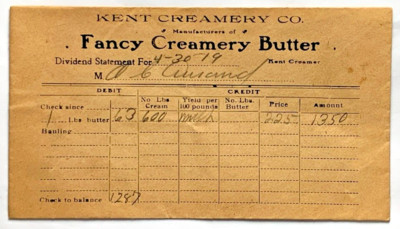 KENT CREAMERY CO.
Manufacturers of
Fancy Creamery Butter
Dividend Statement For 4-30-19 Kent Creamer
M
DEBIT CREDIT
No. Lbs. Cream Yield per 100 pounds No. Lbs. Butter Price Amount
Check since
1 Lbs butter 63 600 milk 225 1350
Hauling
Check to balance 1287